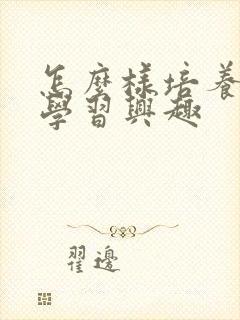 怎麼樣培養
學習興趣
翟邊